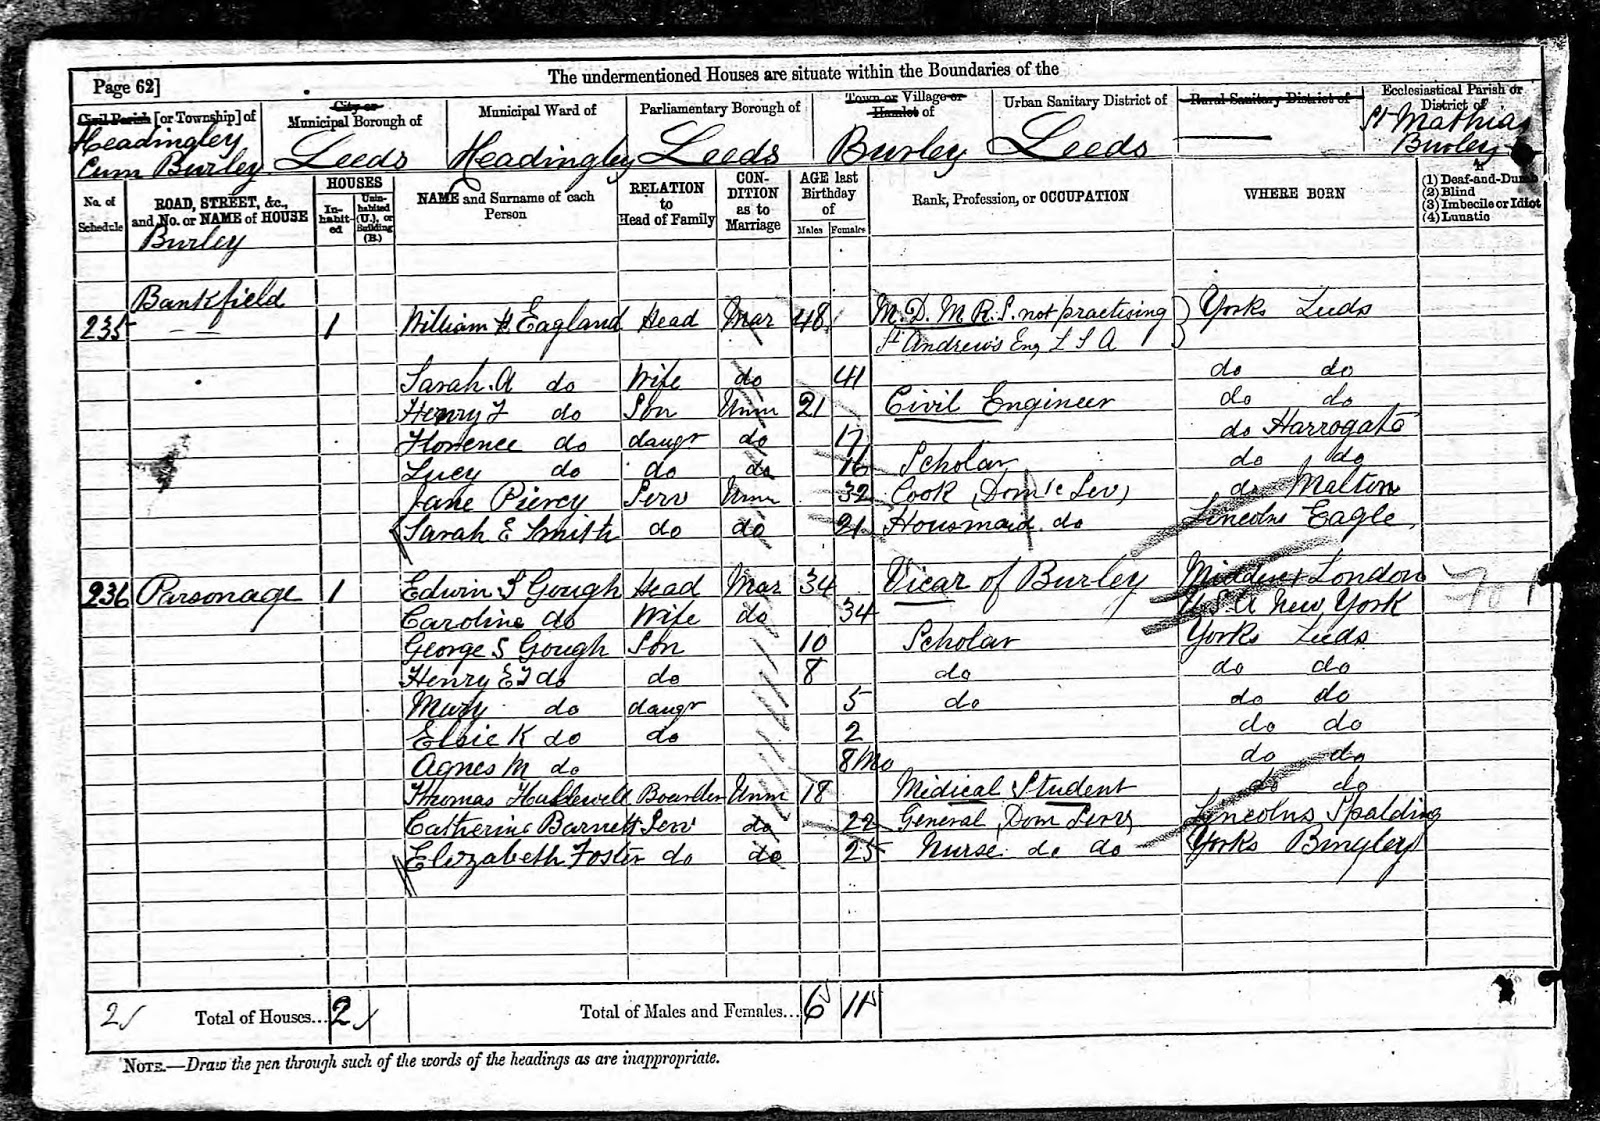 The undermentioned Houses are situate within the Boundaries of the
Page 62]
Civil Parish [or Township] of
City or Municipal Borough of
Municipal Ward of
Parliamentary Borough of
Town or Village or Hamlet of
Urban Sanitary District of
Rural Sanitary District of
Ecclesiastical Parish or District of
Headingley Cum Burley
Leeds
Headingley
Leeds
Burley
Leeds
St Mathias Burley
No. of Schedule
ROAD, STREET, &c., and No. or NAME of HOUSE
HOUSES
In-habit-ed
Unin-habited (U.), or Building (B.)
NAME and Surname of each Person
RELATION to Head of Family
CON-DITION as to Marriage
AGE last Birthday of
Males Females
Rank, Profession, or OCCUPATION
WHERE BORN
(1) Deaf-and-Dumb
(2) Blind
(3) Imbecile or Idiot
(4) Lunatic
Burley
Bankfield
235 1 William H. Eagland Head Mar 48 M.D. M R.S. not practising Yorks Leeds
St Andrew's Eng L S A
Sarah. A do Wife do 41 do do
Henry F do Son Unm 21 Civil Engineer do do
Florence do daugr do 17 do Harrogate
Lucy do do do 16 Scholar do do
Jane Piercy Serv Unm 32 Cook (Domic Serv) do Malton
Sarah E Smith do do 21 Housmaid do Lincolns Eagle
236 Parsonage 1 Edwin S Gough Head Mar 34 Vicar of Burley Middsex London
Caroline do Wife do 34 U.S.A New York
George S Gough Son 10 Scholar Yorks Leeds
Henry E F do do 8 do do do
Mary do daugr 5 do do do
Elsie K do do 2 do do
Agnes M do 8 Mo do do
Thomas Boarder Unm 18 Medical Student do do
Catherine Barnett Serv do 22 General (Dom Serv) Lincolns Spalding
Elizabeth Foster do do 25 Nurse do do Yorks Bingley
2 Total of Houses... 2 Total of Males and Females... 6 11
NOTE.—Draw the pen through such of the words of the headings as are inappropriate.